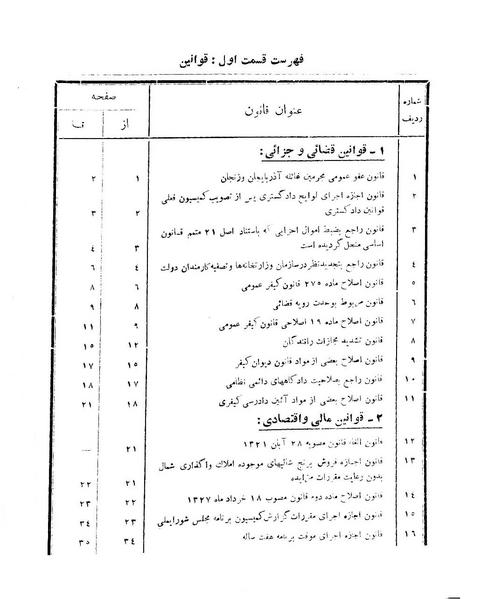 فهرست قسمت اول : قوانین
شماره ردیف عنوان قانون صفحه
از تا
۱ ـ قوانین قضائی و جزائی :
۱ قانون عفو عمومی مجرمین غائله آذربایجان وزنجان ۱ ۲
۲ قانون اجازه اجرای لوایح دادگستری پس از تصویب کمیسیون فعلی
قوانین دادگستری ۲ ۳
۳ قانون راجع بضبط اموال احزابی که باستناد اصل ۲۱ متمم قانون
اساسی منحل گردیده است ۳ ۴
۴ قانون راجع بتجدیدنظر درسازمان وزارتخانه‌ها وتصفیه کارمندان دولت ۴ ۶
۵ قانون اصلاح ماده ۲۷۵ قانون کیفر عمومی ۶ ۸
۶ قانون مربوط بوحدت رویه قضائی ۸ ۹
۷ قانون اصلاح ماده ۱۹ اصلاحی قانون کیفر عمومی ۹ ۱۱
۸ قانون تشدید مجازات رانندگان ۱۲ ۱۵
۹ قانون اصلاح بعضی از مواد قانون دیوان کیفر ۱۵ ۱۷
۱۰ قانون راجع بصلاحیت دادگاههای دائمی نظامی ۱۷ ۱۸
۱۱ قانون اصلاح بعضی از مواد آئین دادرسی کیفری ۱۸ ۲۱
۲ ـ قوانین مالی واقتصادی :
۱۲ قانون الغاء قانون مصوبه ۲۸ آبان ۱۳۲۱ ۲۱ —
۱۳ قانون اجازه فروش برنج شالیهای موجوده املاک واگذاری شمال
بدون رعایت مقررات مزایده ۲۱ ۲۲
۱۴ قانون اصلاح ماده دوم قانون مصوب ۱۸ خرداد ماه ۱۳۲۷ ۲۲ ۲۳
۱۵ قانون اجازه اجرای مقررات گزارش کمیسیون برنامه مجلس شورایملی ۲۳ ۳۴
۱۶ قانون اجازه اجرای موقت برنامه هفت ساله ۳۴ ۳۵